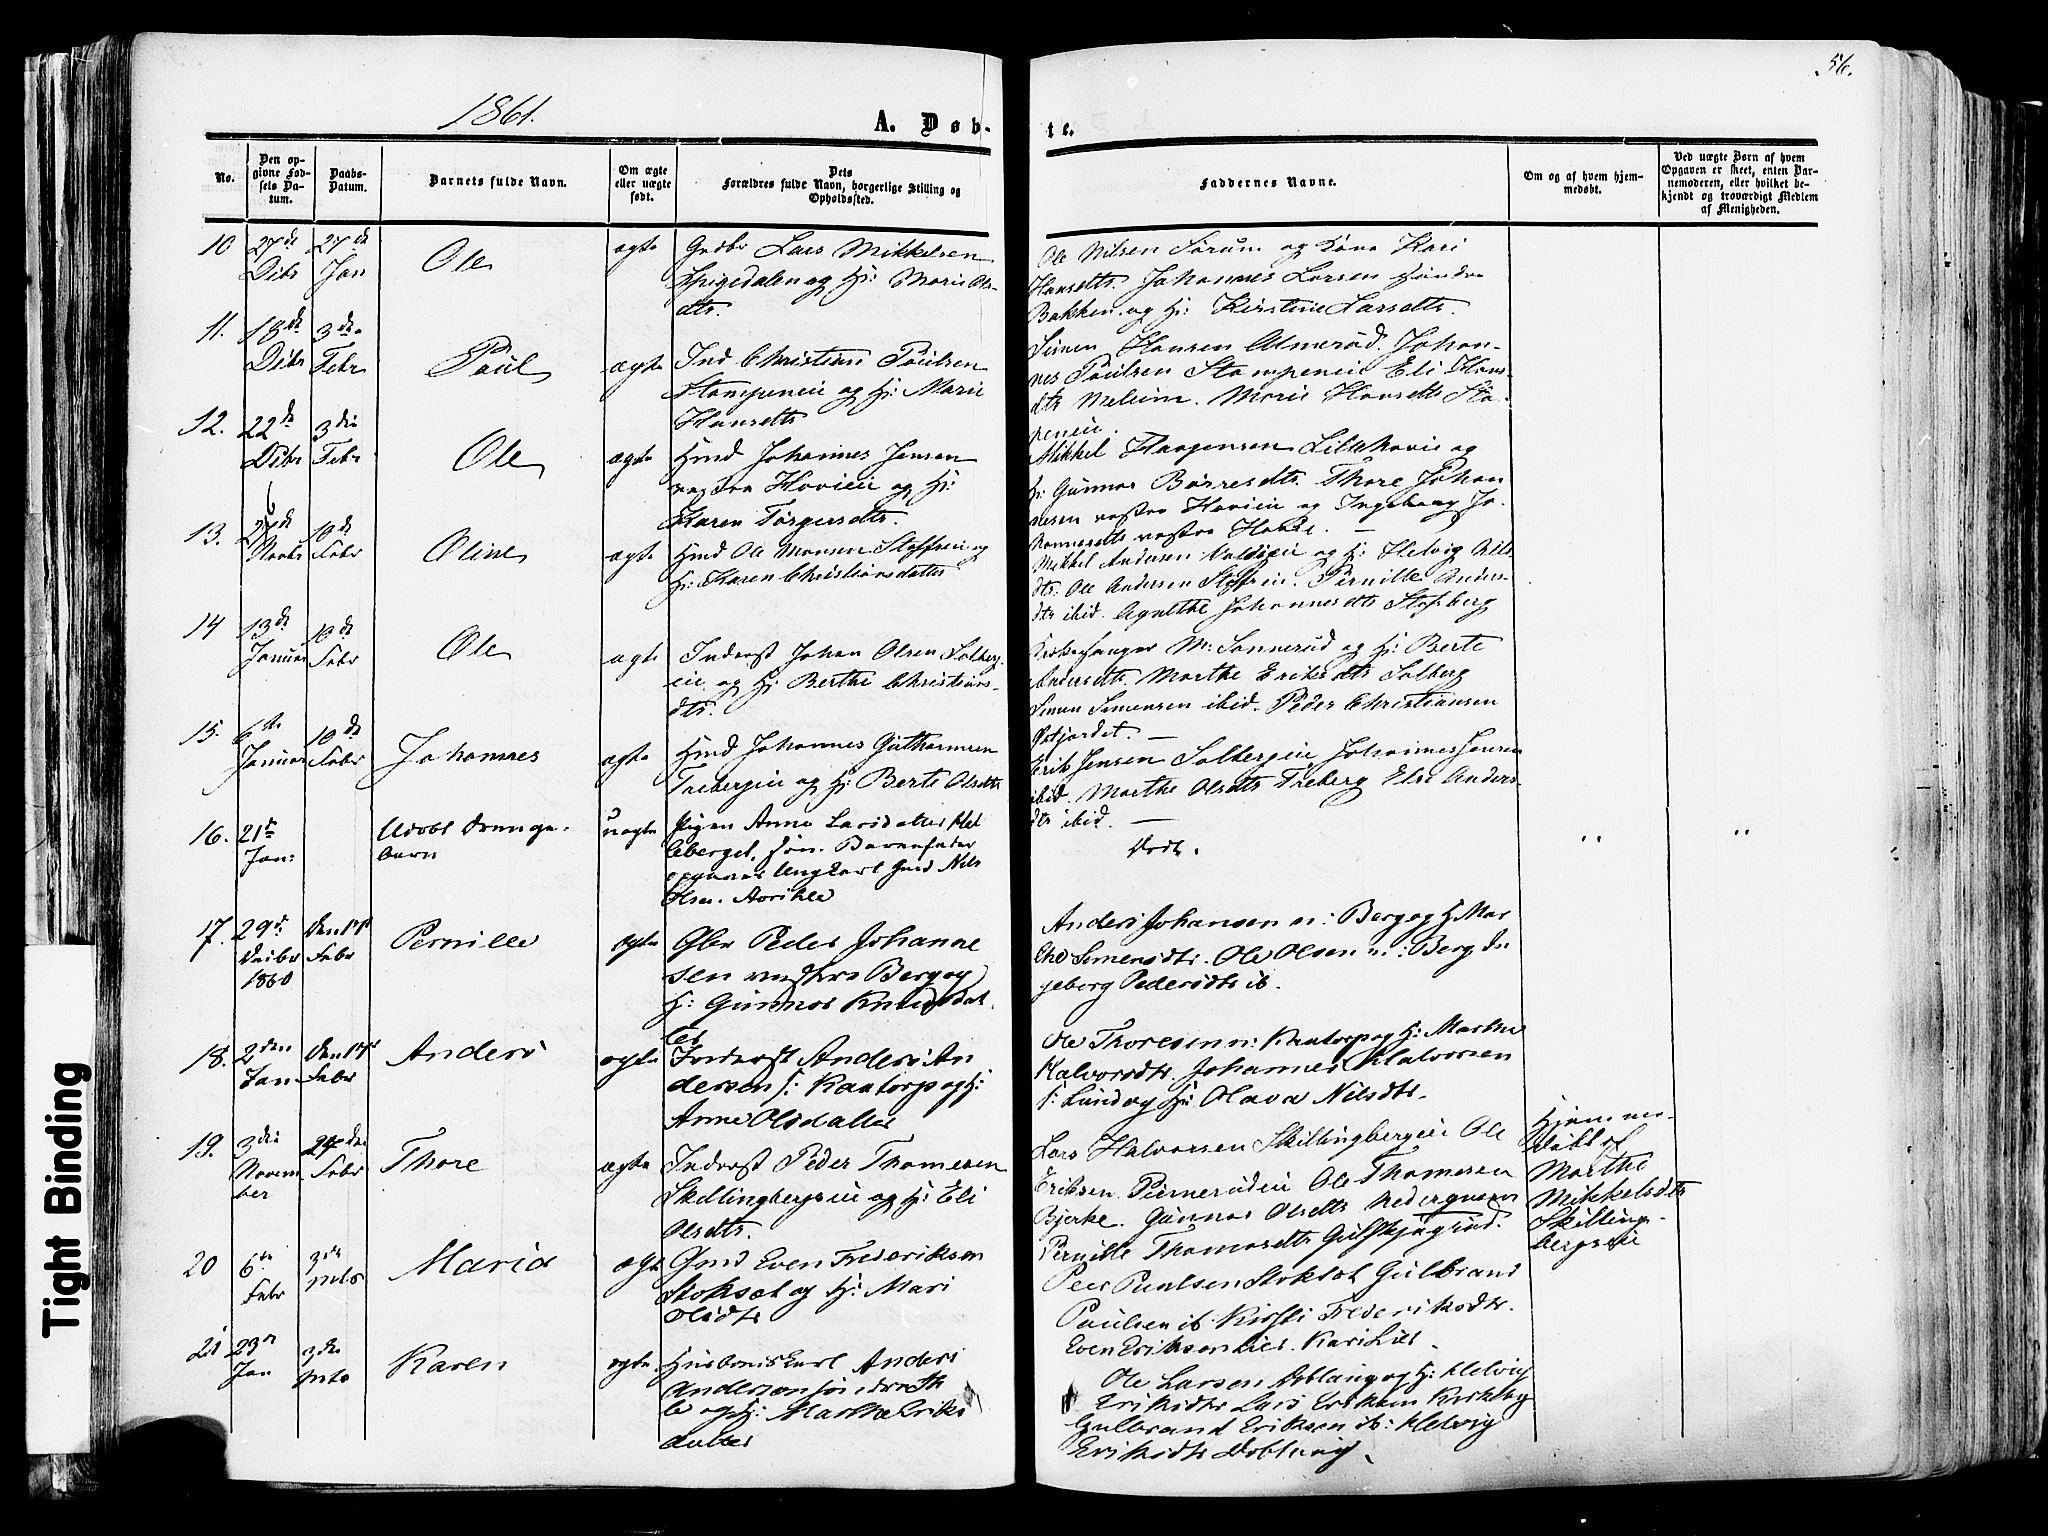 56.
1861.
A. Døb-
te.
No.
Den op-
givne Fød-
sels Da-
tum.
Daabs-
Datum.
Barnets fulde Navn.
Om ægte
eller uægte
født.
Dets
Forældres fulde Navn, borgerlige Stilling og
Opholdssted.
Faddernes Navne.
Om og af hvem hjem-
medøbt.
Ved uægte Børn af hvem
Opgaven er skeet, enten Bar-
nemoderen, eller hvilket be-
kjendt og troværdigt Medlem
af Menigheden.
10 27de Dcbr 27de Jan
Ole
ægte
Lars Mikkelsen
og H: Marie Ols-
dtr.
Ole Nilsen Sørum og Kone Kari
Hansdtr. Johannes Larsen søndre
Bakken og H: Kirstine Larsdtr.
11. 18de Dcbr 3de Febr
Paul
ægte
Ind Christian Paulsen
Stampeneie og H: Marie
Hansdtr
Simen Hansen Almerud. Johan-
nes Paulsen Stampeneie Eli Hans-
dtr Melum. Marie Hansdtr Sta-
peneie.
12. 22de Dcbr 3die Febr
Ole
ægte
Hmd Johannes Jensen
vestre Hovieie og H:
Karen Torgersdtr.
Mikkel Haagensen Lillehovie og
H: Gunnor Børresdtr. Thore Johan
nesen vestre Hovieie og Ingeborg Jo-
hannesdtr vestre
13. 26de Novbr 10de Febr
Oline
ægte
Hmd Ole Monsen og
H: Karen Christiansdatter
Mikkel Andersen og H: Helvig Nils
dtr. Ole Andersen Pernille Anders-
dtr ibid. Agnethe Johannesdtr
14 13de Januar 10de Febr
Ole
ægte
Inderst Johan Olsen Solberg-
eie og H: Berthe Christians-
dtr.
Kirkesanger M: Sønnerud og H: Berte
Andersdtr. Marthe Eriksdtr Solberg
Simen Simensen ibid. Peder Christiansen
15. 6te Januar 10de Febr
Johannes
ægte
Hmd Johannes Guthormsen
Trebergeie og H: Berte Olsdtr
Erik Jensen Solbergeie Johannes Jensen
ibid. Marthe Olsdtr Treberg Else Anders-
dtr ibid.
16. 21de Jan:
Udøbt Drenge-
barn
uægte
Pigen Anne Larsdatter
leberget. Barnefader
opgives Ungkarl Nils
Olsen
Død.
" "
17. 29de Decbr 1860 den 17de Febr
Pernille
ægte
Gbr Peder Johanne
sen vestre Berg og
H: Gunnor Knudsdat-
ter
Anders Johansen n: Berg og H: Mar
the Simensdtr. Ole Olsen n: Berg In
geborg Pedersdtr ib.
18. 2den Jan den 17de Febr
Anders
ægte
Inderst Anders An
dersen s: Kaatorp og H:
Anne Olsdatter
Ole Thoresen n: Kaatorp og H: Marthe
Halvorsdtr. Johannes Halvorsen
s: Lund og H: Olava Nilsdtr.
19. 3die Novem ber 24de Febr
Thore
ægte
Inderst Peder Thomesen
Skillingbergseie og H: Eli
Olsdtr.
Lars Halvorsen Skillingbergeie Ole
Eriksen Ole Thomesen
Bjerke. Gunnor Olsdtr
Pernille Thomasdtr
Hjemme-
døbt af
Marthe
Mikkelsdtr
Skilling-
bergseie
20 6te Febr 3de Mts
Maria
ægte
Gmd Even Frederiksen
Stoksæt og H: Mari
Olsdtr
Peer Paulsen Stoksæt Gulbrand
Paulsen ib Kirsti Frederiksdtr.
Even Eriksen Lier. Kari Lier.
21 23de Jan 3die Mts
Karen
ægte
Husbondskarl Anders
Andersen søndre
og H: Marthe Eriks
datter
Ole Larsen Dobloug og H: Helvig
Eriksdtr Lars Eriksen Kirkeby
Gulbrand Eriksen ib: Helvig
Eriksdtr Dobloug.
Tight Binding